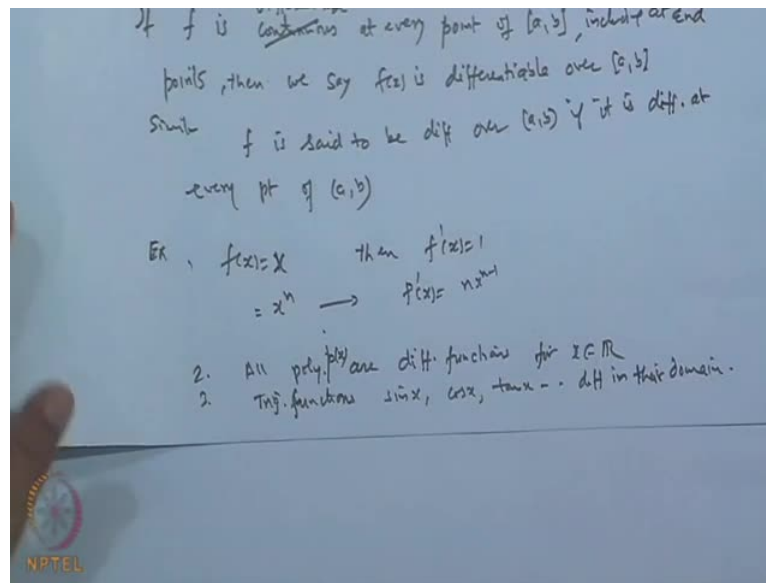 If f is continuous at every point of [a,b], including at end
points, then we say f(x) is differentiable over [a,b]
Simil
f is said to be diff over (a,b) if it is diff. at
every pt of (a,b)
Ex 1 f(x)=x then f'(x)=1
= x^n → f'(x)= nx^{n-1}
2. All poly. p(x) are diff. functions for x∈ℝ
3. Trig. functions sinx, cosx, tanx -- diff in their domain.
NPTEL